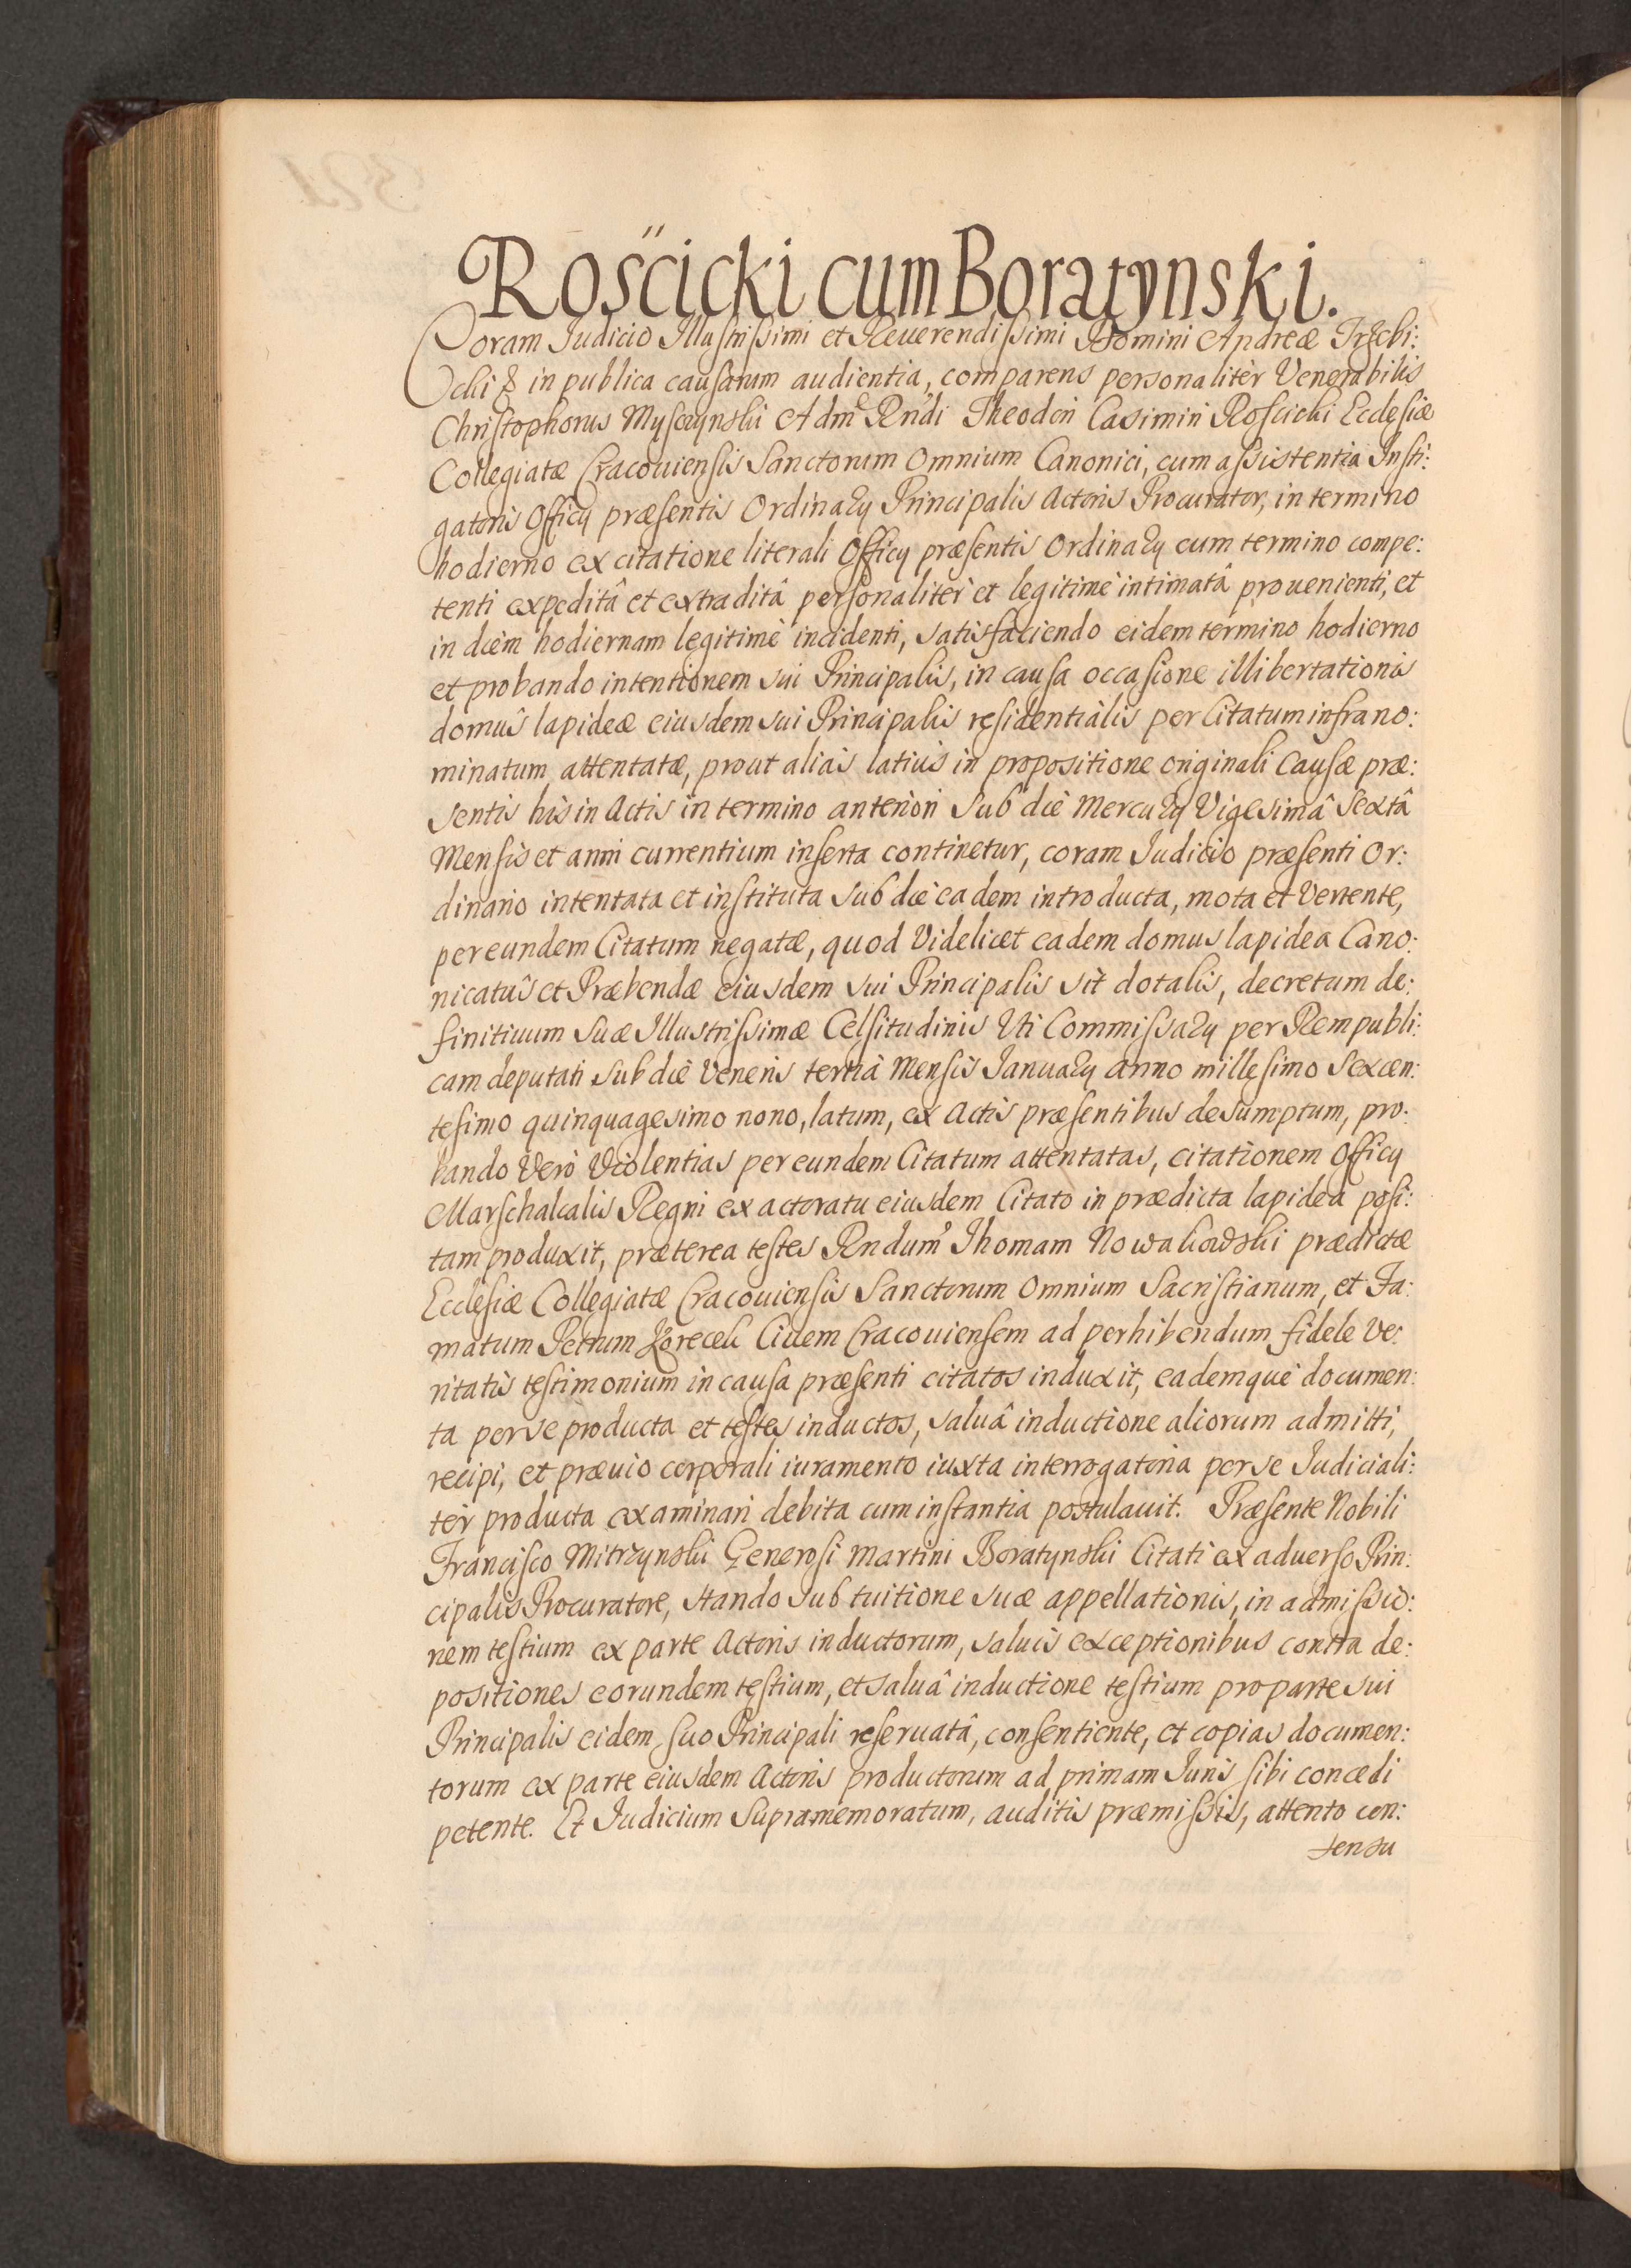 Rościcki cum Boratynski.
Coram Iudicio Illustrissimi et Reuerendissimi Domini Andreæ Trzebi:
cki & in publica causarum audientia, comparens personalitèr Venerabilis
Christophorus Mysczynski Admi Rndi Theodori Casimiri Roscicki Ecclesiæ
Collegiatæ Cracouiensis Sanctorum Omnium Canonici, cum assistentia Insti:
gatoris Officij præsentis Ordinarij Principalis Actoris Procurator, in termino
hodierno ex citatione literali Officij præsentis Ordinarij cum termino compe:
tenti expeditâ et extraditâ personalitèr et legitimè intimatâ prouenienti, et
in diem hodiernam legitimè incidenti, satisfaciendo eidem termino hodierno
et probando intentionem sui Principalis, in causa occasione illibertationis
domûs lapideæ eiusdem sui Principalis residentialis per Citatum infrano:
minatum attentatæ, prout aliàs latiùs in propositione originali Causæ præ:
sentis his in Actis in termino anteriori sub die Mercurij Vigesimâ Sextâ
Mensis et anni currentium inserta continetur, coram Iudicio præsenti Or:
dinario intentata et instituta sub die eadem introducta, mota et Vertente,
per eundem Citatum negatæ, quod Videlicet eadem domus lapidea Cano:
nicatûs et Præbendæ eiusdem sui Principalis sit dotalis, decretum de:
finitiuum Suæ Illustrissimæ Celsitudinis Vti Commissarij per Rempubli:
cam deputati sub die Veneris tertia Mensis Ianuarij anno millesimo Sexcen:
tesimo quinquagesimo nono, latum, ex Actis præsentibus desumptum, pro:
bando Verò Violentias per eundem Citatum attentatas, citationem Officij
Marschalcalis Regni ex actoratu eiusdem Citato in prædicta lapidea posi:
tam produxit, præterea testes Rndum Thomam Nowakowski prædictæ
Ecclesiæ Collegiatæ Cracouiensis Sanctorum Omnium Sacristianum, et Fa:
matum Petrum Ciuem Cracouiensem ad perhibendum fidele Ve:
ritatis testimonium in causa præsenti citatos induxit, eademque documen:
ta per se producta et testes inductos, saluâ inductione aliorum admitti,
recipi, et præuio corporali iuramento iuxta interrogatoria per se Iudiciali:
tèr producta examinari debita cum instantia postulauit. Præsente Nobili
Francisco Mitrzynski Generosi Martini Boratynski Citati ex aduerso Prin:
cipalis Procuratore, stando sub tuitione suæ appellationis, in admissio:
nem testium ex parte Actoris inductorum, saluis exceptionibus contra de:
positiones eorundem testium, et saluâ inductione testium pro parte sui
Principalis eidem suo Principali reseruatâ, consentiente, et copias documen:
torum ex parte eiusdem Actoris productorum ad primam Iuris sibi concedi
petente. Et Iudicium Supramemoratum, auditis præmissis, attento con:
sensu